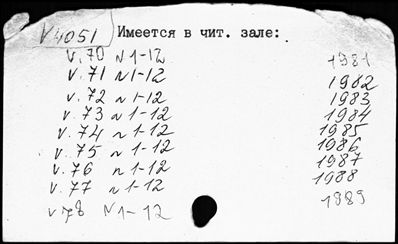 V4051 Имеется в чит. зале:
v. 70 N 1-12 1981
v. 71 N 1-12 1982
v. 72 N 1-12 1983
v. 73 N 1-12 1984
v. 74 N 1-12 1985
v. 75 N 1-12 1986
v. 76 N 1-12 1987
v. 77 N 1-12 1988
v. 78 N 1-12 1989